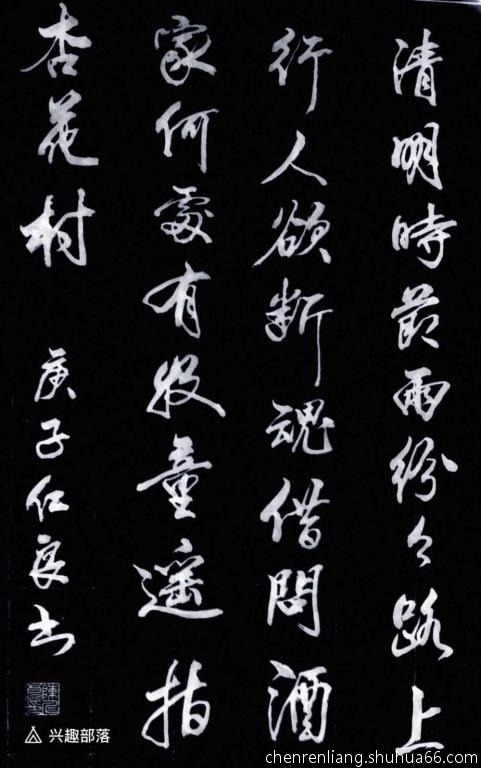 清明時節雨紛々路上
行人欲断魂借問酒
家何處有牧童遥指
杏花村
庚子仁良书
兴趣部落
chenrenliang.shuhua66.com